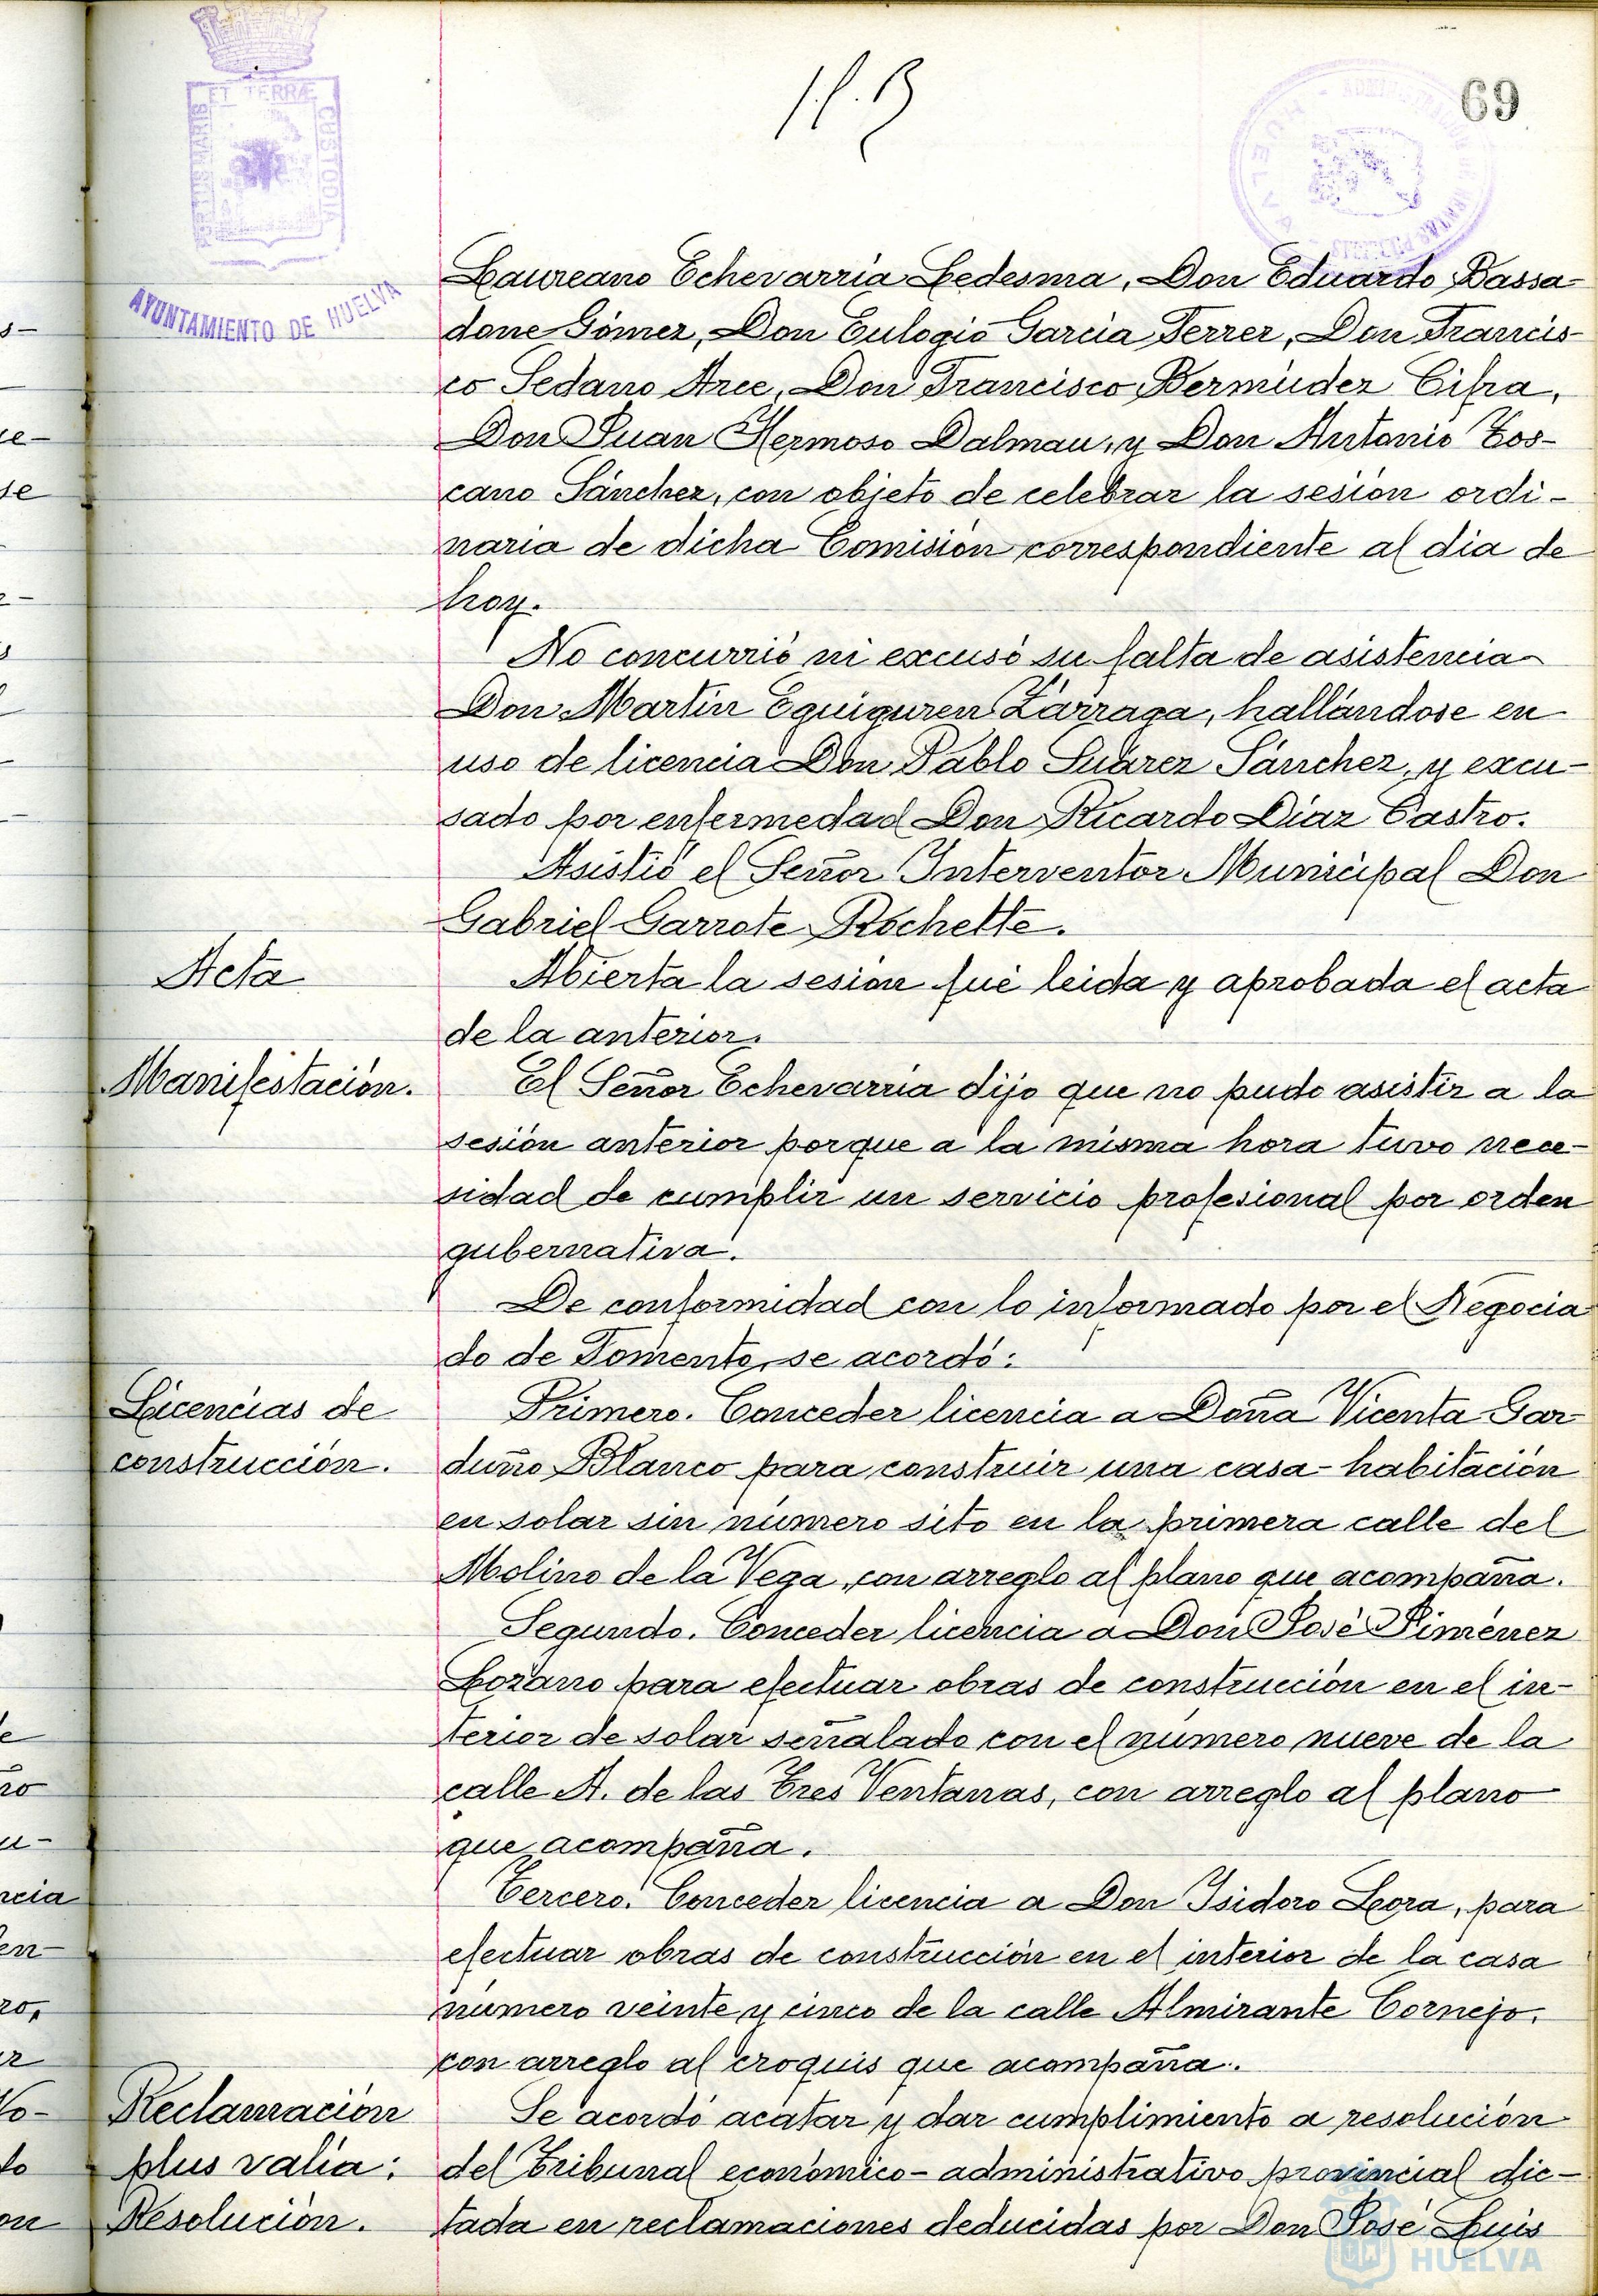 69
PORTUS MARIS
ET TERRÆ
CUSTODIA
AYUNTAMIENTO DE HUELVA
Laureano Echevarria Ledesma, Don Eduardo Bassa-
done Gómez, Don Eulogio Garcia Ferrer, Don Francis-
co Sedano Arce, Don Francisco Bermúdez Cifra,
Don Juan Hermoso Dalmau, y Don Antonio Tos-
cano Sánchez, con objeto de celebrar la sesión ordi-
naria de dicha Comisión correspondiente al dia de
hoy.
No concurrió ni excusó su falta de asistencia
Don Martin Eguiguren Zárraga, hallándose en
uso de licencia Don Pablo Suárez Sánchez, y excu-
sado por enfermedad Don Ricardo Diaz Castro.
Asistió el Señor Interventor Municipal Don
Gabriel Garrote Rochette.
Acta
Abierta la sesión fué leida y aprobada el acta
de la anterior.
Manifestación.
El Señor Echevarria dijo que no pudo asistir a la
sesión anterior porque a la misma hora tuvo nece-
sidad de cumplir un servicio profesional por orden
gubernativa.
De conformidad con lo informado por el Negocia
do de Fomento, se acordó:
Licencias de
construcción.
Primero. Conceder licencia a Doña Vicenta Gar
duño Blanco para construir una casa-habitación
en solar sin número sito en la primera calle del
Molino de la Vega, con arreglo al plano que acompaña.
Segundo. Conceder licencia a Don José Jiménez
Lozano para efectuar obras de construcción en el in-
terior de solar señalado con el número nueve de la
calle A. de las Tres Ventanas, con arreglo al plano
que acompaña.
Tercero. Conceder licencia a Don Isidoro Lora, para
efectuar obras de construcción en el interior de la casa
número veinte y cinco de la calle Almirante Cornejo,
con arreglo al croquis que acompaña.
Reclamación
plus valia:
Resolución.
Se acordó acatar y dar cumplimiento a resolución
del Tribunal económico-administrativo provincial dic-
tada en reclamaciones deducidas por Don José Luis
HUELVA